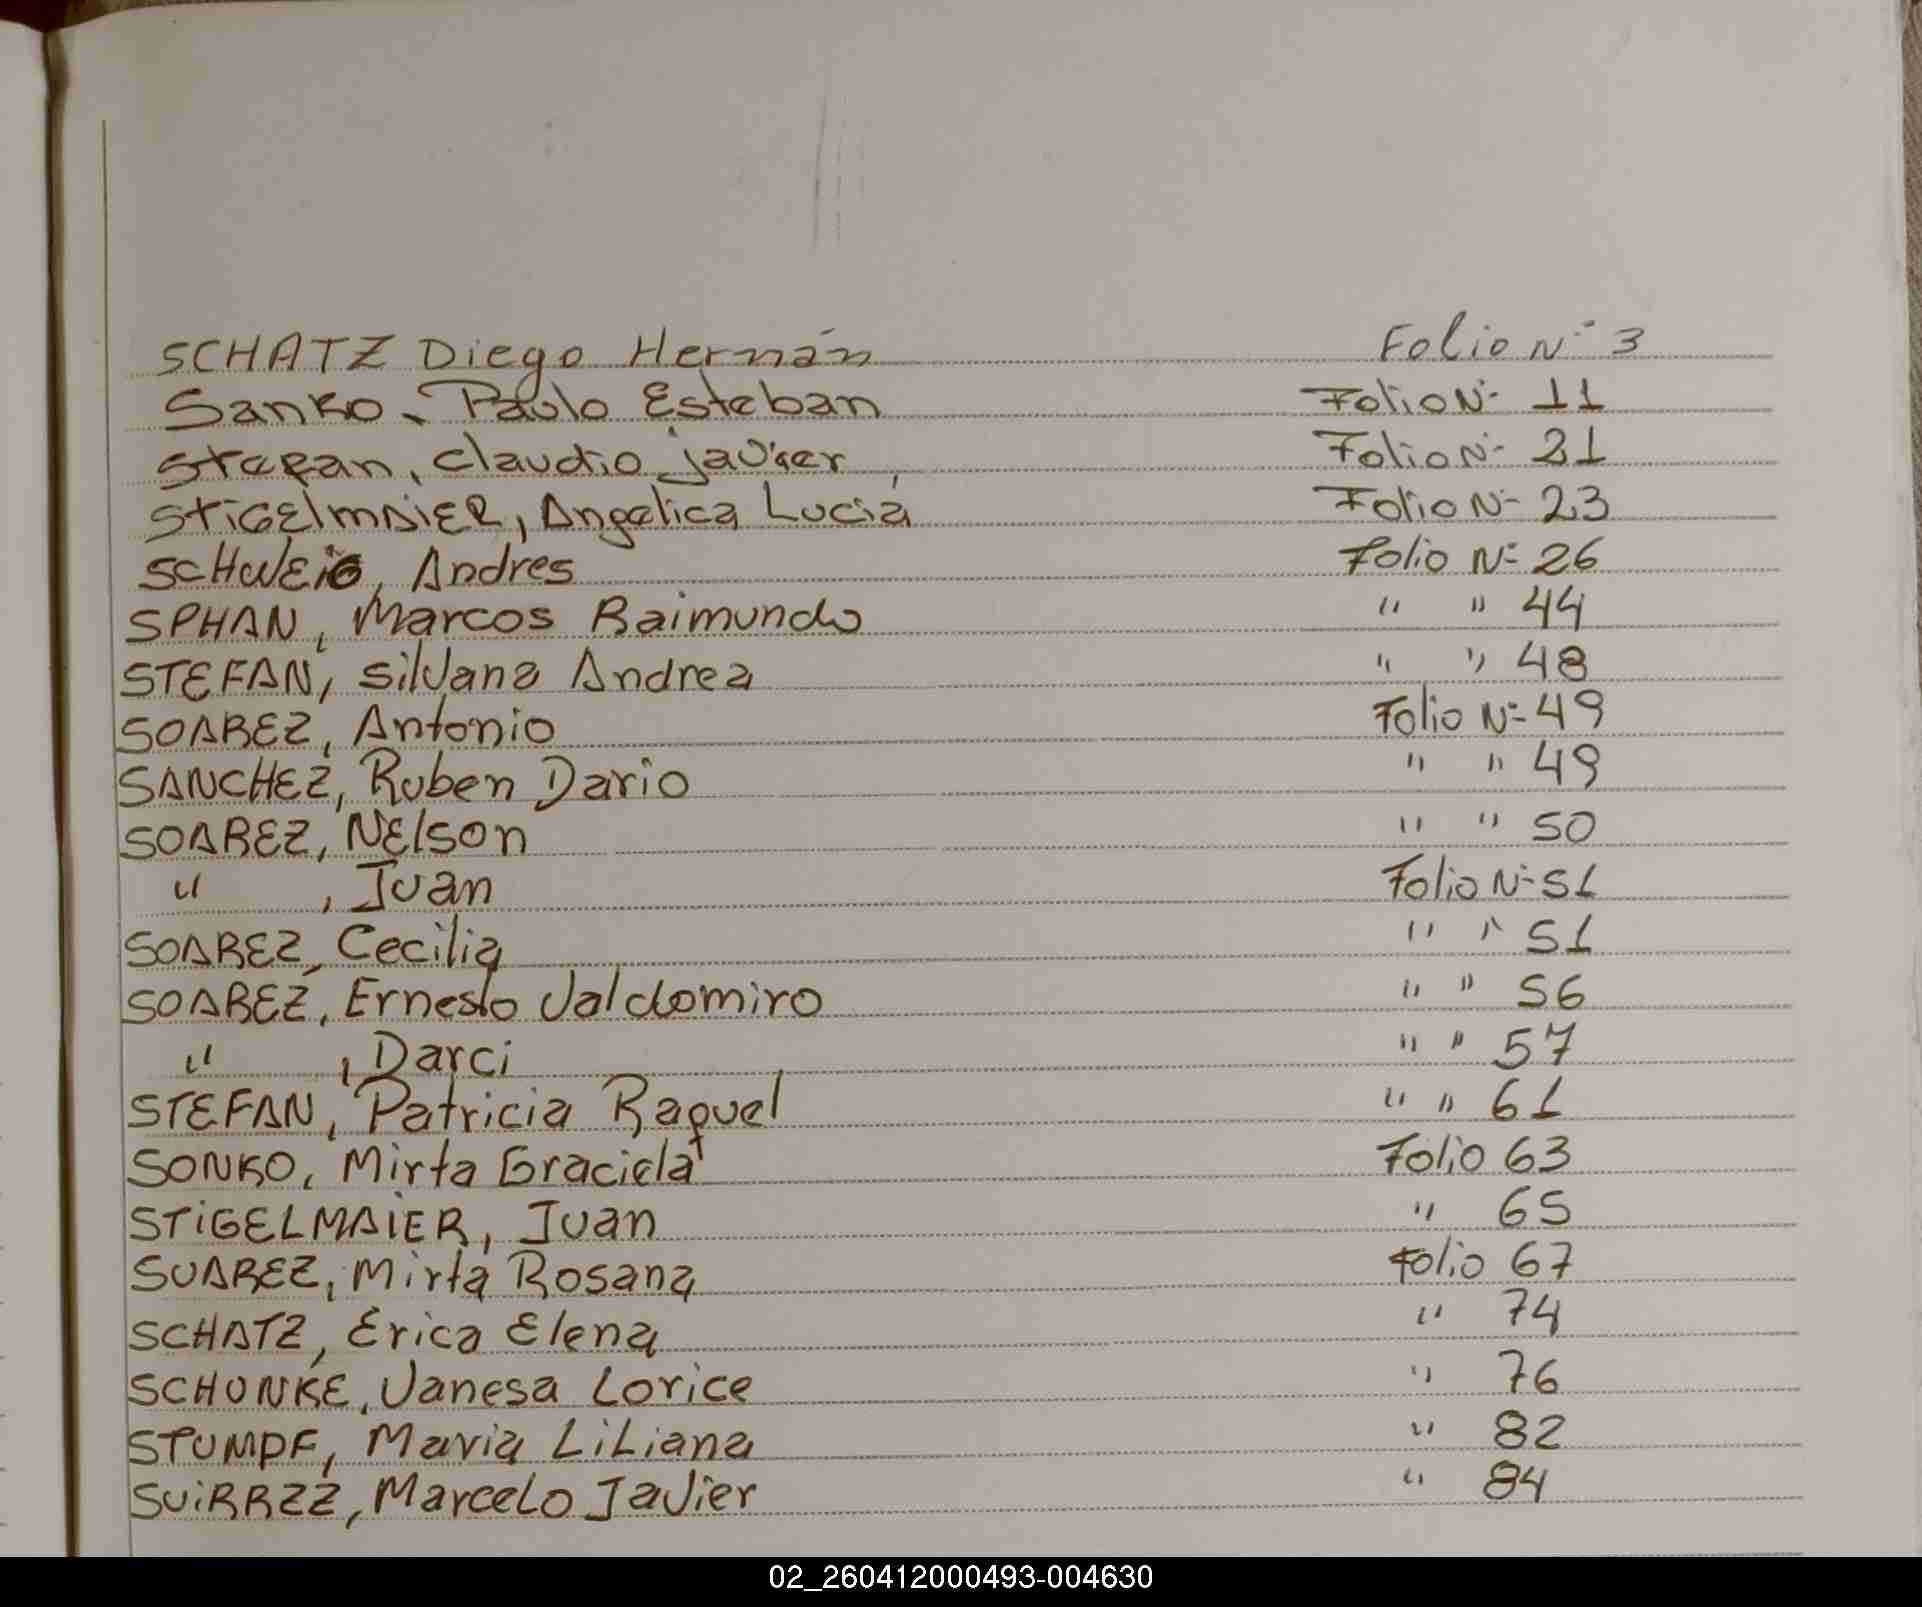 SCHATZ Diego Hernán Folio Nº 3
Sanko, Paulo Esteban Folio Nº 11
Stefan, Claudio javier Folio Nº 21
STiGElmAiER, Angelica Lucía Folio Nº 23
SCHWEiG, Andres Folio Nº 26
SPHAN, Marcos Raimundo " " 44
STEFAN, Silvana Andrea " " 48
SOAREZ, Antonio Folio Nº 49
SANCHEZ, Ruben Dario " " 49
SOAREZ, NElson " " 50
" , Juan Folio Nº 51
SOAREZ, Cecilia " " 51
SOAREZ, Ernesto Valdomiro " " 56
" , Darci " " 57
STEFAN, Patricia Raquel " " 61
SONKO, Mirta Graciela Folio 63
STiGELMAIER, Juan " 65
SUAREZ, Mirta Rosana Folio 67
SCHATZ, Erica Elena " 74
SCHUNKE, Vanesa Lorice " 76
STUMPF, Maria LiLiana " 82
Marcelo Javier " 84
02_260412000493-004630